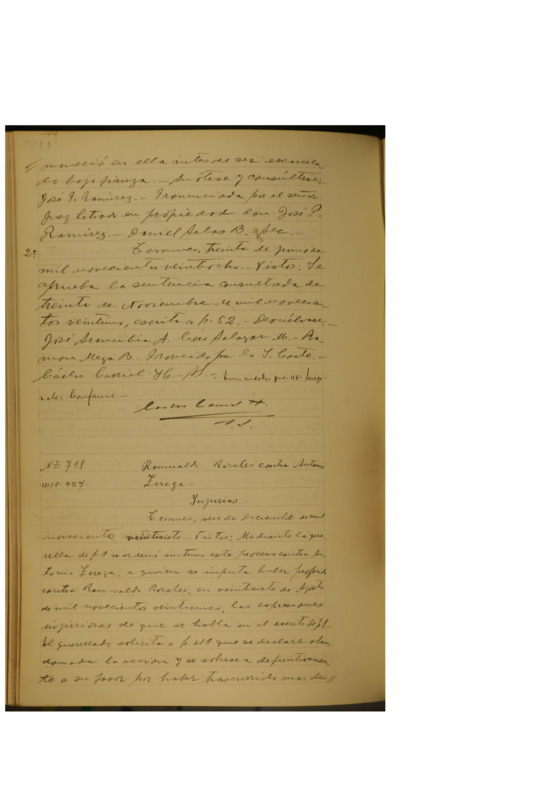 maneció en ella antes de ser excarcela
do bajo fianza. - Anótese y consúltese.
José P. Ramirez. - Pronunciada por el señor
Juez Letrado en propiedad don José P.
Ramirez. - Daniel Salas B. Sec. -
2ª Temuco, treinta de junio de
mil novecientos veintiocho. - Vistos: Se
aprueba la sentencia consultada de
treinta de Noviembre de mil novecien
tos veintiuno, escrita a f. 52. - Devuélvase. -
José Arancibia A. Luis Salazar M. - Ra
mon Meza R. - Proveido por la I. Corte. -
Carlos H. - 
Conforme. -
Nº 718 Romualdo Rosales contra Antonio
Zerega. -
Injurias. -
Temuco, seis de diciembre de mil
novecientos veintisiete. - Vistos: Mediante la que
rella de f 1 se ordenó instruir este proceso contra An
tonio Zerega, a quien se imputa haber proferido
contra Romualdo Rosales, en veintisiete de Agosto
de mil novecientos veinticinco, las expresiones
injuriosas de que se habla en el escrito de f 1.
El querellado solicita a f. que se declare aban
donada la accion y se sobresea definitivamen
te a su favor por haber trascurrido mas de